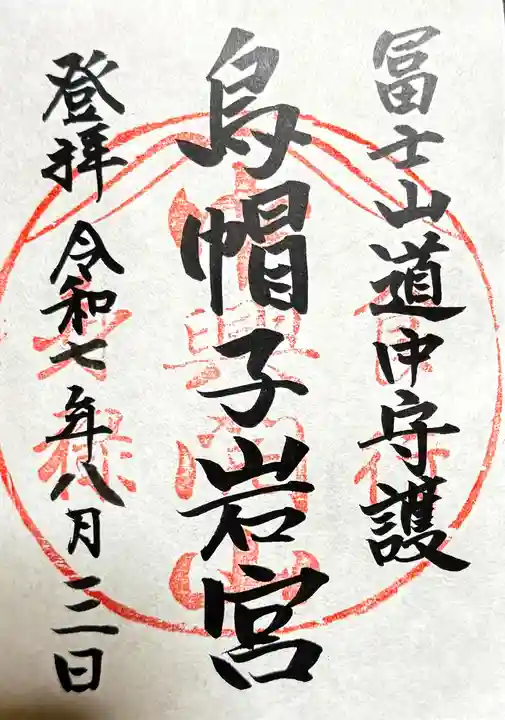 冨士山道中守護
烏帽子岩宮
登拝 令和七年八月三日